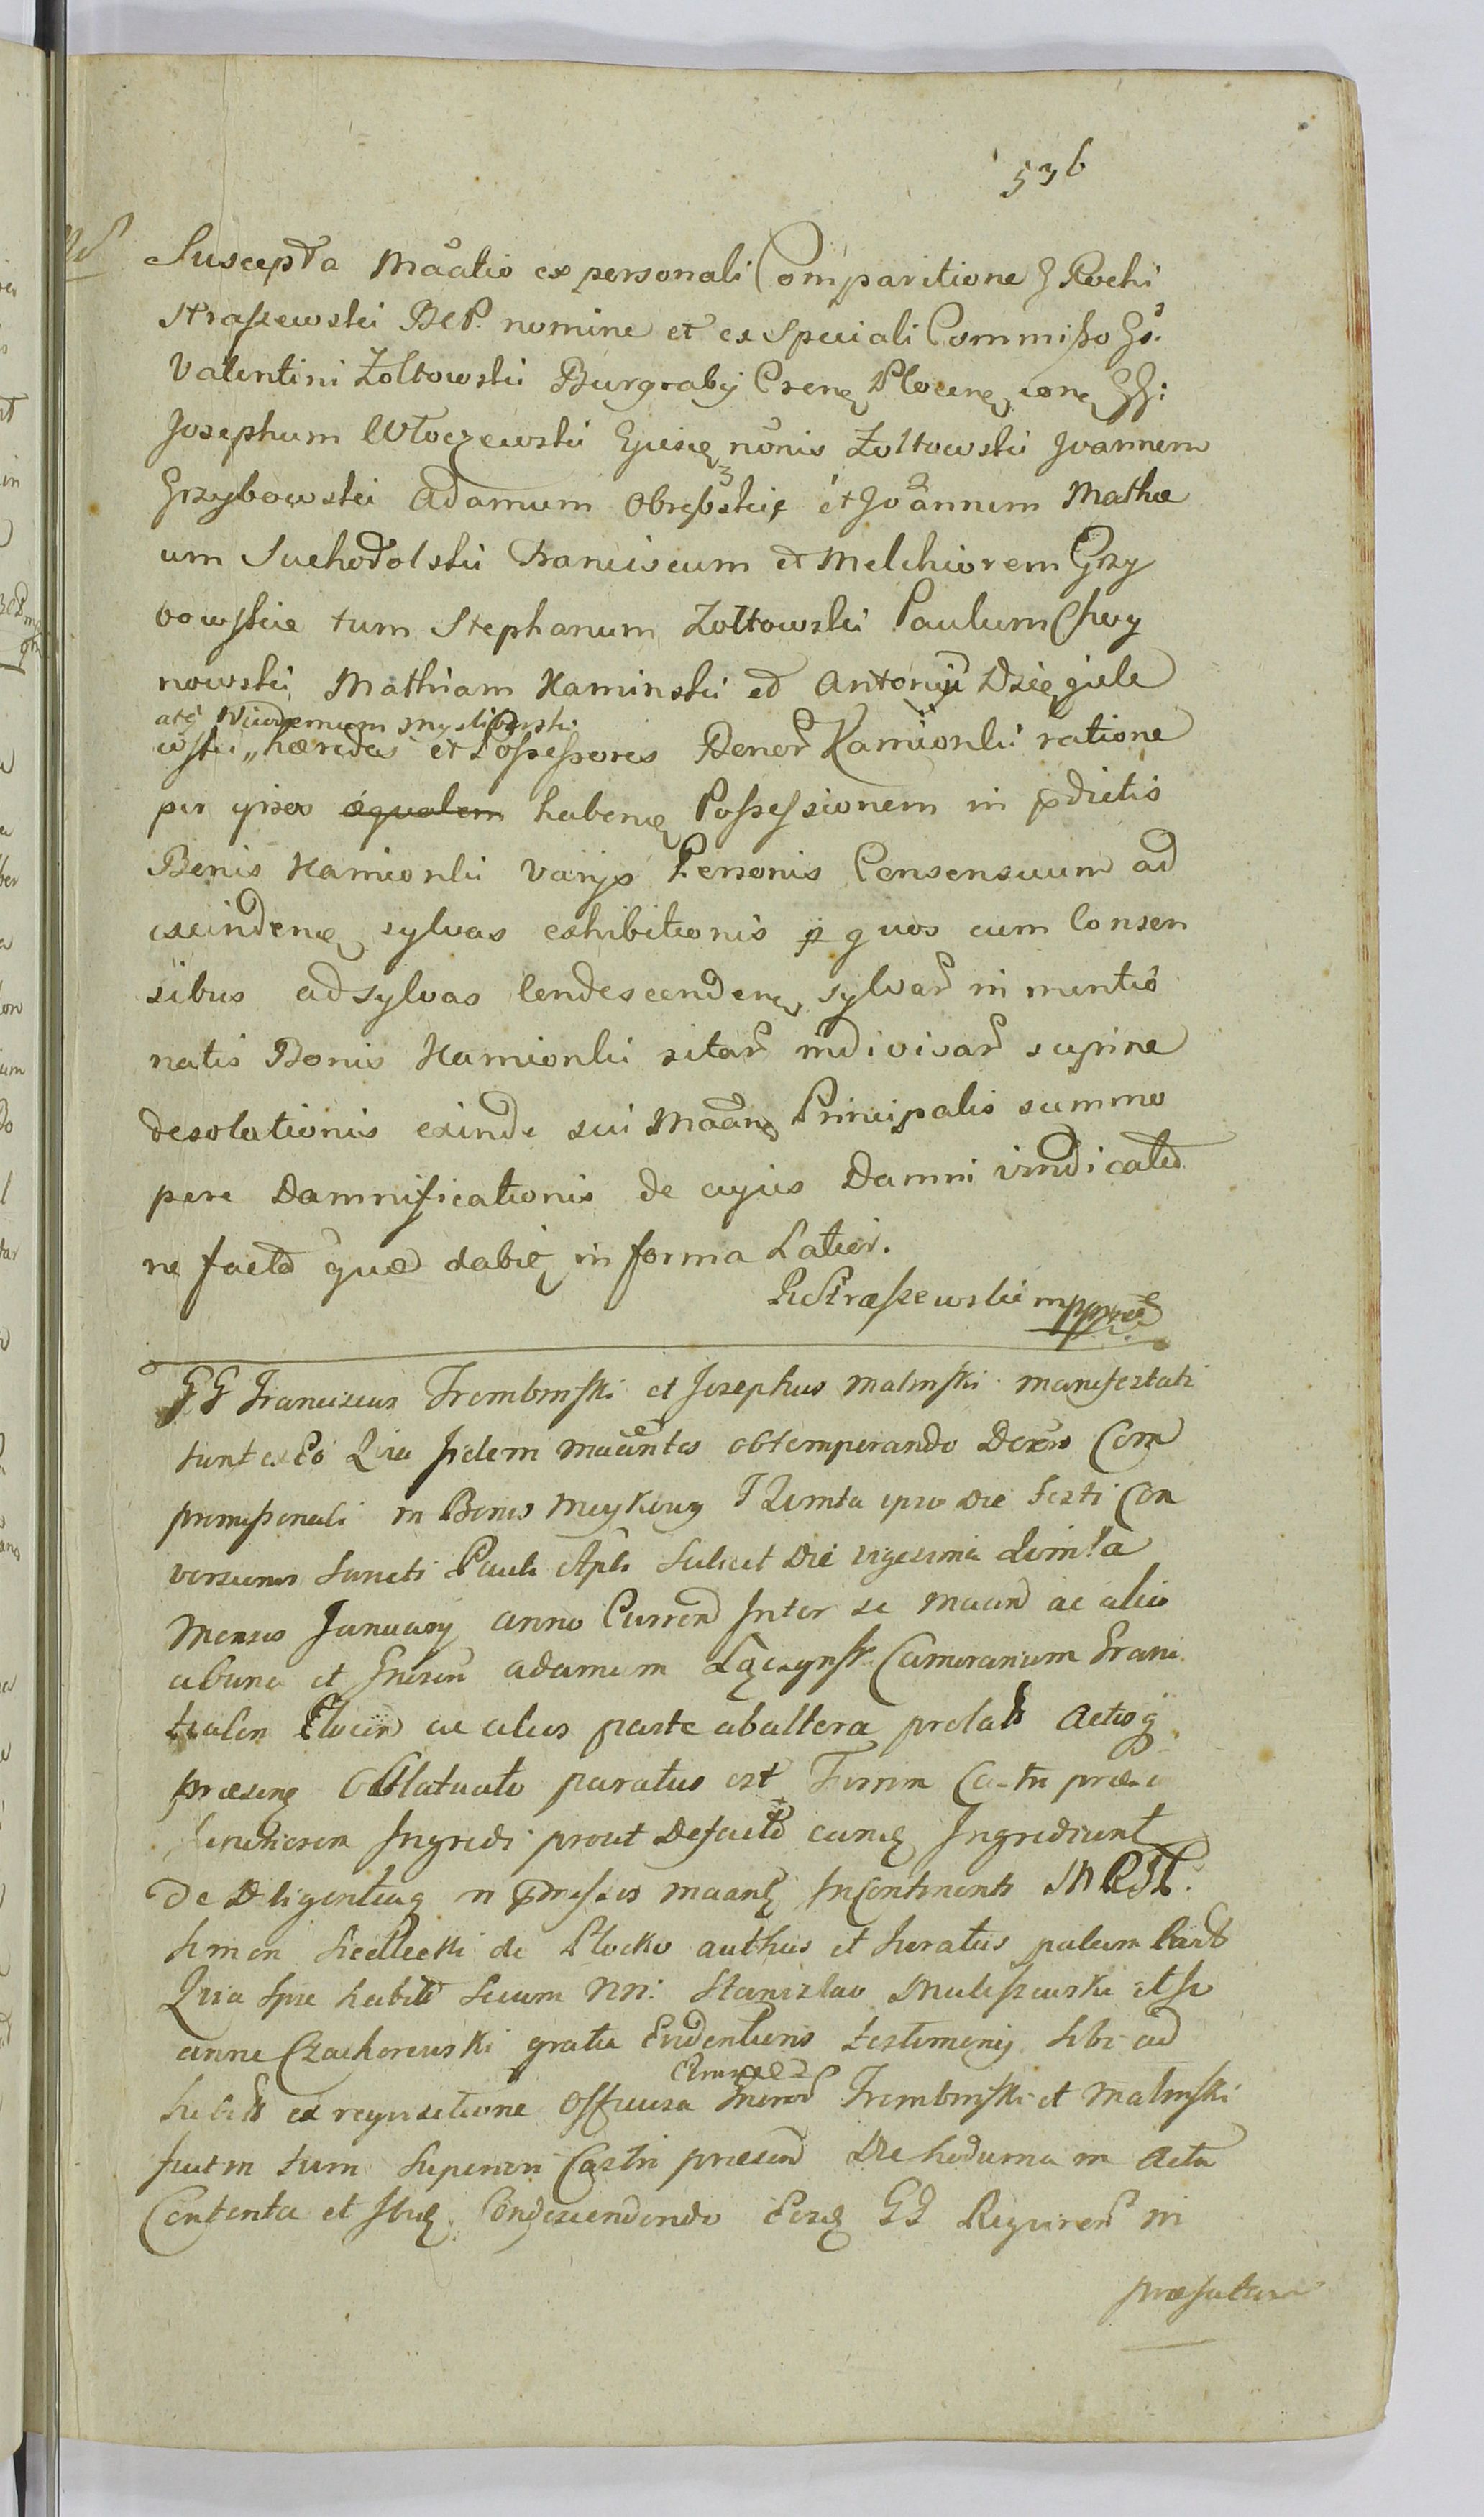 536
Suscepta Maãtio ex personali Comparitione G Rochi
Straszewski BCP. nomine et ex Speciali Commisso Gs.
Valentini Zoltowski Burgrabij Crens Plocens cons GG:
Josephum Włoczewski Ejusq nõnis Zoltowski Joannem
Grzybowski Adamum Obrębskie et Joãnnem Mathæ
um Suchodolski Franciscum et Melchiorem Grzy
bowskie tum Stephanum Zołtowski Paulum Choy
nowski Mathiam Kaminski ed Antonij Dzięgiele
atq Nicodemum Myslibor
wski hæredes et Possessores Bonor Kamionki ratione
per ipsos æqualem habens Possessionem in pdictis
Bonis Kamionki varijs Personis Consensuum ad
exindens sylvas exhibitionis p quos cum Consen
sibus ad sylvas Condescendens sylvar in mentio
natis Bonis Kamionki sitar indivisar supine
desolationis exinde sui Maãns Principalis summo
pere Damnificationis de cujus Damni vindicatd
ne facto quæ dabit in forma Latior.
RStraszewski mppria
GG Franciscus Trembinski et Josephus Malinski manifestati
sunt ex Eo Quia Jidem Maãntes obtemperando Decreto Com
promissionali in Bonis ipso die festi Con
versionis Sancti Pauli Apli Scilicet Die vigesima Quinta
Mensis January anno Curren Inter se Maan ac alio
ab una et Gnerosum Adamum Camerarium Grani
tialem Plocen ac alios parte ab altera prolato Actisq
præsens Oblatuato paratus est Castri præs
Ingredi prout Defacto eums Ingrediunt
De Diligentiaq in præmissis Maans Incontinenti M
Simon Siedlecki de Plocko authus et Juratus palam
Quia Ipse habito Secum NN: Stanislao et Jo
anne Czachorowski gratia Evidentioris testimonij Sibi ad
hibito ex requisitione Officiosa Gneror Trembinski et Malinski
fuit in Castri præsen Die hodierna in Actu
Contenta et Condescendendo GG Requiren in
præfatum